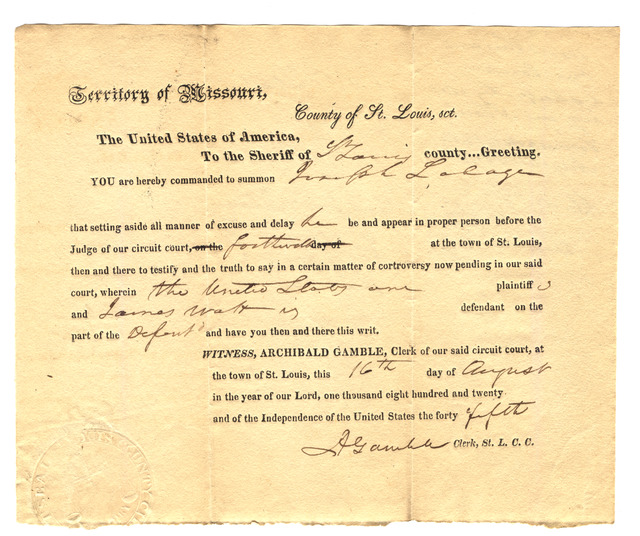 Territory of Missouri,
County of St. Louis, sct.
The United States of America,
To the Sheriff of St Louis county...Greeting.
YOU are hereby commanded to summon Joseph Labage
that setting aside all manner of excuse and delay he be and appear in proper person before the
Judge of our circuit court, on the forthwith day of at the town of St. Louis,
then and there to testify and the truth to say in a certain matter of controversy now pending in our said
court, wherein the United States are plaintiff s
and James Watt is defendant on the
part of the Defent and have you then and there this writ.
WITNESS, ARCHIBALD GAMBLE, Clerk of our said circuit court, at
the town of St. Louis, this 16th day of August
in the year of our Lord, one thousand eight hundred and twenty
and of the Independence of the United States the forty fifth
A Gamble Clerk, St. L. C. C.